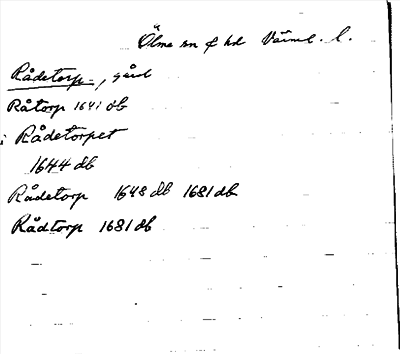 Ölme sn o hd Värml. l.
Rådetorp, gård
Råtorp 1641 db
i Rådetorpet
1644 db
Rådetorp 1648 db 1681 db
Rådtorp 1681 db